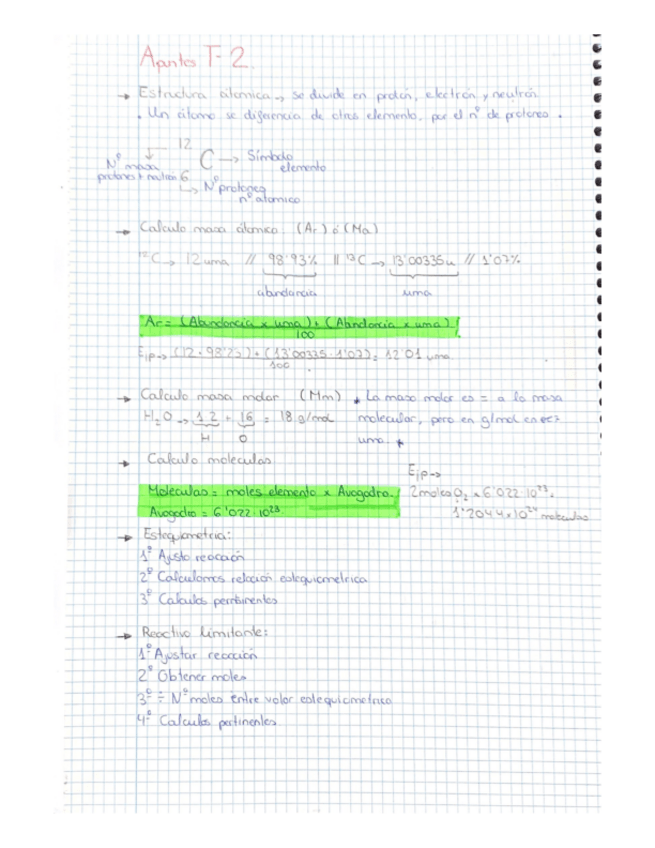 Apuntes T-2.
→ Estructura átomica → se divide en protón, electrón y neutrón
. Un átomo se diferencia de otros elemento, por el nº de protones.
12
C → Símbolo elemento
Nº masa
protones + neutron 6
↳ Nº protones
nº atomico
→ Calculo masa átomica (Ar) ó (Ma)
¹²C → 12 uma // 98'93% // ¹³C → 13'00335u // 1'07%
abundancia uma
Ar = (Abundancia x uma) + (Abundancia x uma) /
100
Ejp → (12 · 98'93) + (13'00335 · 1'07) = 12'01 uma
100
→ Calculo masa molar (Mm) * La masa molar es = a la masa
H₂O → 1·2 + 16 = 18 g/mol molecular, pero en g/mol en vez
H O uma *
→ Calculo moleculas
Ejp →
Moleculas = moles elemento x Avogadro. / 2 moles O₂ x 6'022·10²³ =
Avogadro = 6'022·10²³ 1'2044x10²⁴ moleculas
→ Estequiometria:
1º Ajusto reacción
2º Calculamos relación estequiometrica
3º Calculos pertinentes
→ Reactivo limitante:
1º Ajustar reacción
2º Obtener moles
3º ÷ Nº moles entre valor estequiometrico
4º Calculos pertinentes